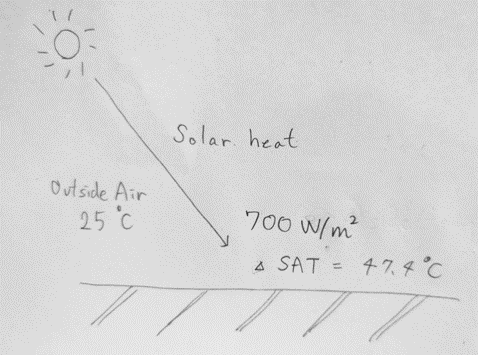 Solar heat
Outside Air
25 °C
700 W/m²
△ SAT = 47.4 °C